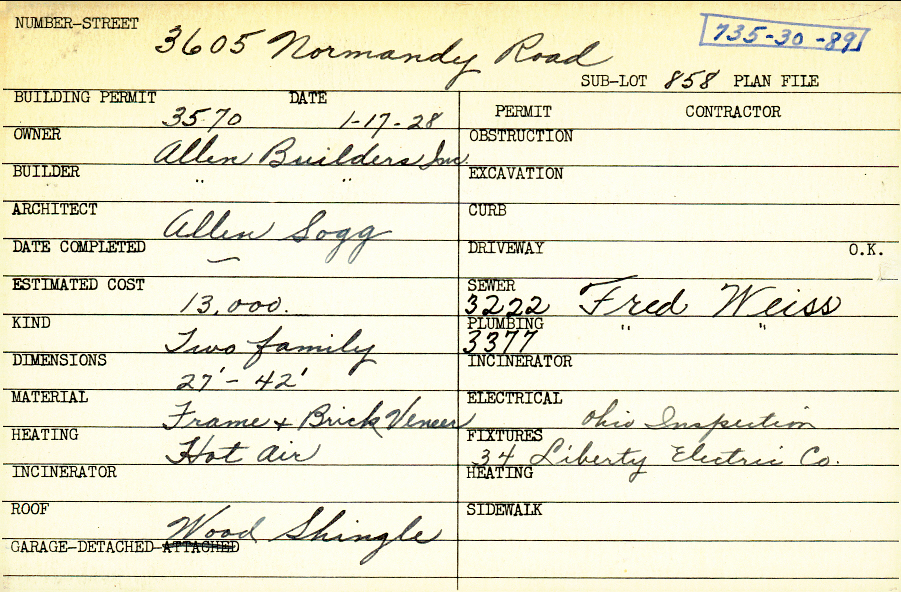 NUMBER-STREET 3605 Normandy Road 735-30-89
SUB-LOT 858 PLAN FILE
BUILDING PERMIT 3570 DATE 1-17-28
OWNER Allen Builders Inc.
BUILDER " "
ARCHITECT Allen Sogg
DATE COMPLETED —
ESTIMATED COST 13,000.
KIND Two family
DIMENSIONS 27' - 42'
MATERIAL Frame + Brick Veneer
HEATING Hot Air
INCINERATOR
ROOF Wood Shingle
GARAGE-DETACHED-ATTACHED
PERMIT CONTRACTOR
OBSTRUCTION
EXCAVATION
CURB
DRIVEWAY O.K.
SEWER 3222 Fred Weiss
PLUMBING 3377 " "
INCINERATOR
ELECTRICAL Ohio Inspection
FIXTURES 34 Liberty Electric Co.
HEATING
SIDEWALK